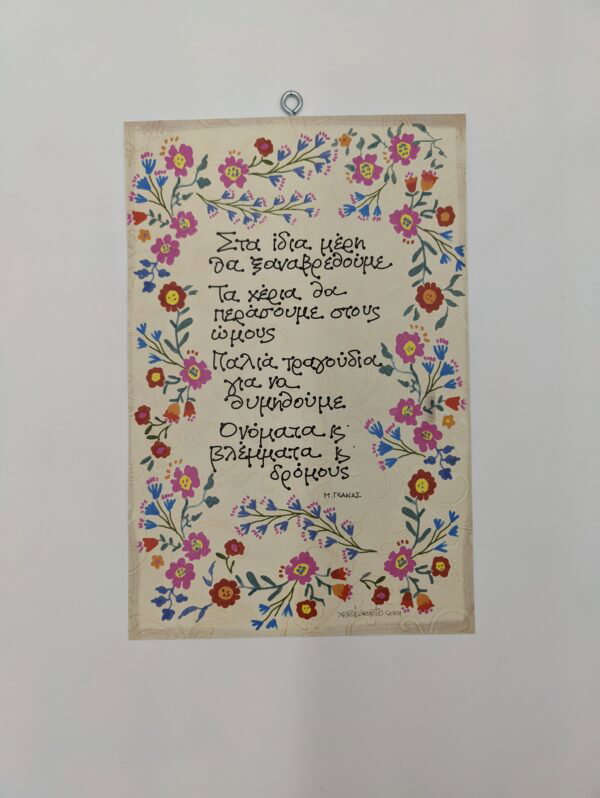 Στα ίδια μέρη
θα ξαναβρεθούμε
Τα χέρια θα
περάσουμε στους
ώμους
Παλιά τραγούδια
για να
θυμηθούμε
Ονόματα ϗ
βλέμματα ϗ
δρόμους
Μ. ΓΚΑΝΑΣ